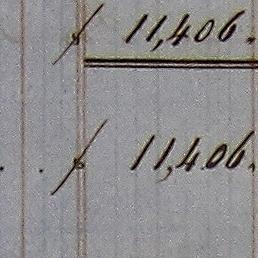 $ 11,406.
. . $ 11,406.